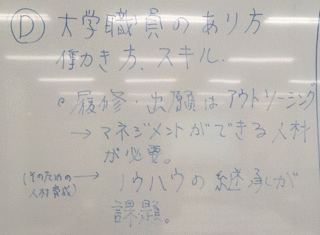 Ⓓ 大学職員のあり方
働き方、スキル.
◦ 履修・出願はアウトソーシング
→ マネジメントができる人材
が必要。
(そのための
人材育成) → ノウハウの継承が
課題。